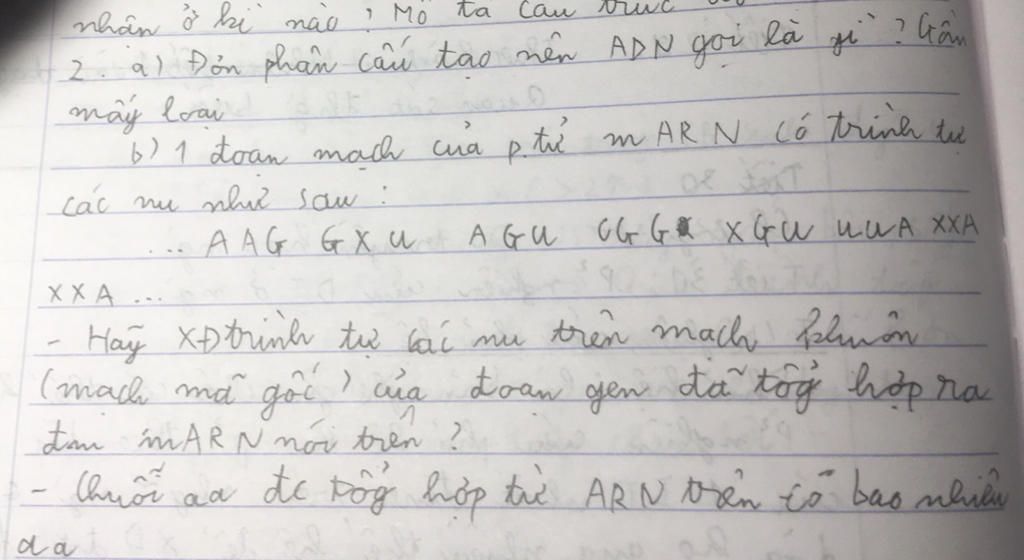 nhân ở kì nào? Mô tả cấu trúc
2. a) Đơn phân cấu tạo nên ADN gọi là gì? Gồm
mấy loại
b) 1 đoạn mạch của p.tử mARN có trình tự
các nu như sau:
... AAG GXU AGU GGG XGU UUA XXA
XXA ...
- Hãy XĐ trình tự các nu trên mạch khuôn
(mạch mã gốc) của đoạn gen đã tổg hợp ra
đm mARN nói trên?
- Chuỗi aa đc tổg hợp từ ARN trên có bao nhiêu
aa